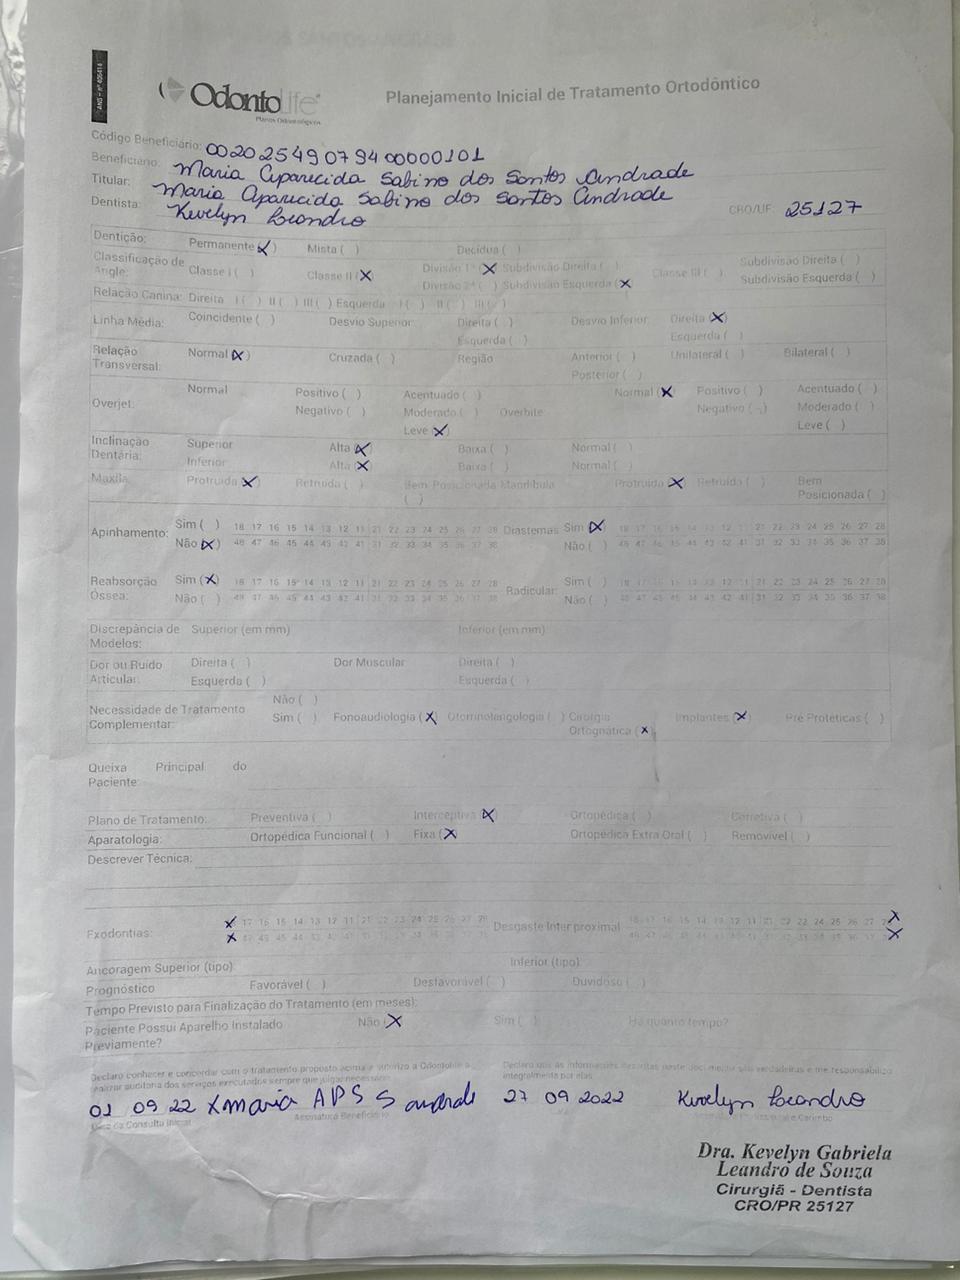 ANS - nº 406414
OdontoLife
Planos Odontológicos
Planejamento Inicial de Tratamento Ortodôntico
Código Beneficiário: 00202549079400000101
Beneficiário: Maria Aparecida Sabino dos Santos Andrade
Titular: Maria Aparecida Sabino dos Santos Andrade
Dentista: Kevelyn Leandro CRO/UF: 25127
Dentição: Permanente (X) Mista ( ) Decídua ( )
Classificação de Angle: Classe I ( ) Classe II (X) Divisão 1ª (X) Subdivisão Direita ( ) Classe III ( ) Subdivisão Direita ( )
Divisão 2ª ( ) Subdivisão Esquerda (X) Subdivisão Esquerda ( )
Relação Canina: Direita I ( ) II ( ) III ( ) Esquerda I ( ) II ( ) III ( )
Linha Média: Coincidente ( ) Desvio Superior: Direita ( ) Desvio Inferior: Direita (X)
Esquerda ( ) Esquerda ( )
Relação Transversal: Normal (X) Cruzada ( ) Região Anterior ( ) Unilateral ( ) Bilateral ( )
Posterior ( )
Overjet: Normal Positivo ( ) Acentuado ( ) Normal (X) Positivo ( ) Acentuado ( )
Negativo ( ) Moderado ( ) Overbite Negativo ( ) Moderado ( )
Leve (X) Leve ( )
Inclinação Dentária: Superior Alta (X) Baixa ( ) Normal ( )
Inferior Alta (X) Baixa ( ) Normal ( )
Maxila: Protruída (X) Retruída ( ) Bem Posicionada ( ) Mandíbula Protruída (X) Retruída ( ) Bem Posicionada ( )
Apinhamento: Sim ( ) 18 17 16 15 14 13 12 11 21 22 23 24 25 26 27 28 Diastemas Sim (X) 18 17 16 15 14 13 12 11 21 22 23 24 25 26 27 28
Não (X) 48 47 46 45 44 43 42 41 31 32 33 34 35 36 37 38 Não ( ) 48 47 46 45 44 43 42 41 31 32 33 34 35 36 37 38
Reabsorção Óssea: Sim (X) 18 17 16 15 14 13 12 11 21 22 23 24 25 26 27 28 Radicular: Sim ( ) 18 17 16 15 14 13 12 11 21 22 23 24 25 26 27 28
Não ( ) 48 47 46 45 44 43 42 41 31 32 33 34 35 36 37 38 Não ( ) 48 47 46 45 44 43 42 41 31 32 33 34 35 36 37 38
Discrepância de Modelos: Superior (em mm) Inferior (em mm)
Dor ou Ruído Articular: Direita ( ) Dor Muscular Direita ( )
Esquerda ( ) Esquerda ( )
Necessidade de Tratamento Complementar: Não ( )
Sim ( ) Fonoaudiologia (X) Otorrinolaringologia ( ) Cirurgia Ortognática (X) Implantes (X) Pré Protéticas ( )
Queixa Principal do Paciente:
Plano de Tratamento: Preventiva ( ) Interceptiva (X) Ortopédica ( ) Corretiva ( )
Aparatologia: Ortopédica Funcional ( ) Fixa (X) Ortopédica Extra Oral ( ) Removível ( )
Descrever Técnica:
Exodontias: X 17 16 15 14 13 12 11 21 22 23 24 25 26 27 28 Desgaste Inter proximal 18 17 16 15 14 13 12 11 21 22 23 24 25 26 27 X
X 47 46 45 44 43 42 41 31 32 33 34 35 36 37 38 48 47 46 45 44 43 42 41 31 32 33 34 35 36 37 X
Ancoragem Superior (tipo) Inferior (tipo)
Prognóstico Favorável ( ) Desfavorável ( ) Duvidoso ( )
Tempo Previsto para Finalização do Tratamento (em meses):
Paciente Possui Aparelho Instalado Previamente? Não (X) Sim ( ) Há quanto tempo?
Declaro conhecer e concordar com o tratamento proposto acima e autorizo a Odontolife a realizar auditoria dos serviços executados sempre que julgar necessário
Declaro que as informações descritas neste documento são verdadeiras e me responsabilizo integralmente por elas
01 09 22 X Maria APSS Andrade 27 09 2022 Kevelyn Leandro
Data da Consulta Inicial Assinatura Beneficiário
Dra. Kevelyn Gabriela
Leandro de Souza
Cirurgiã - Dentista
CRO/PR 25127